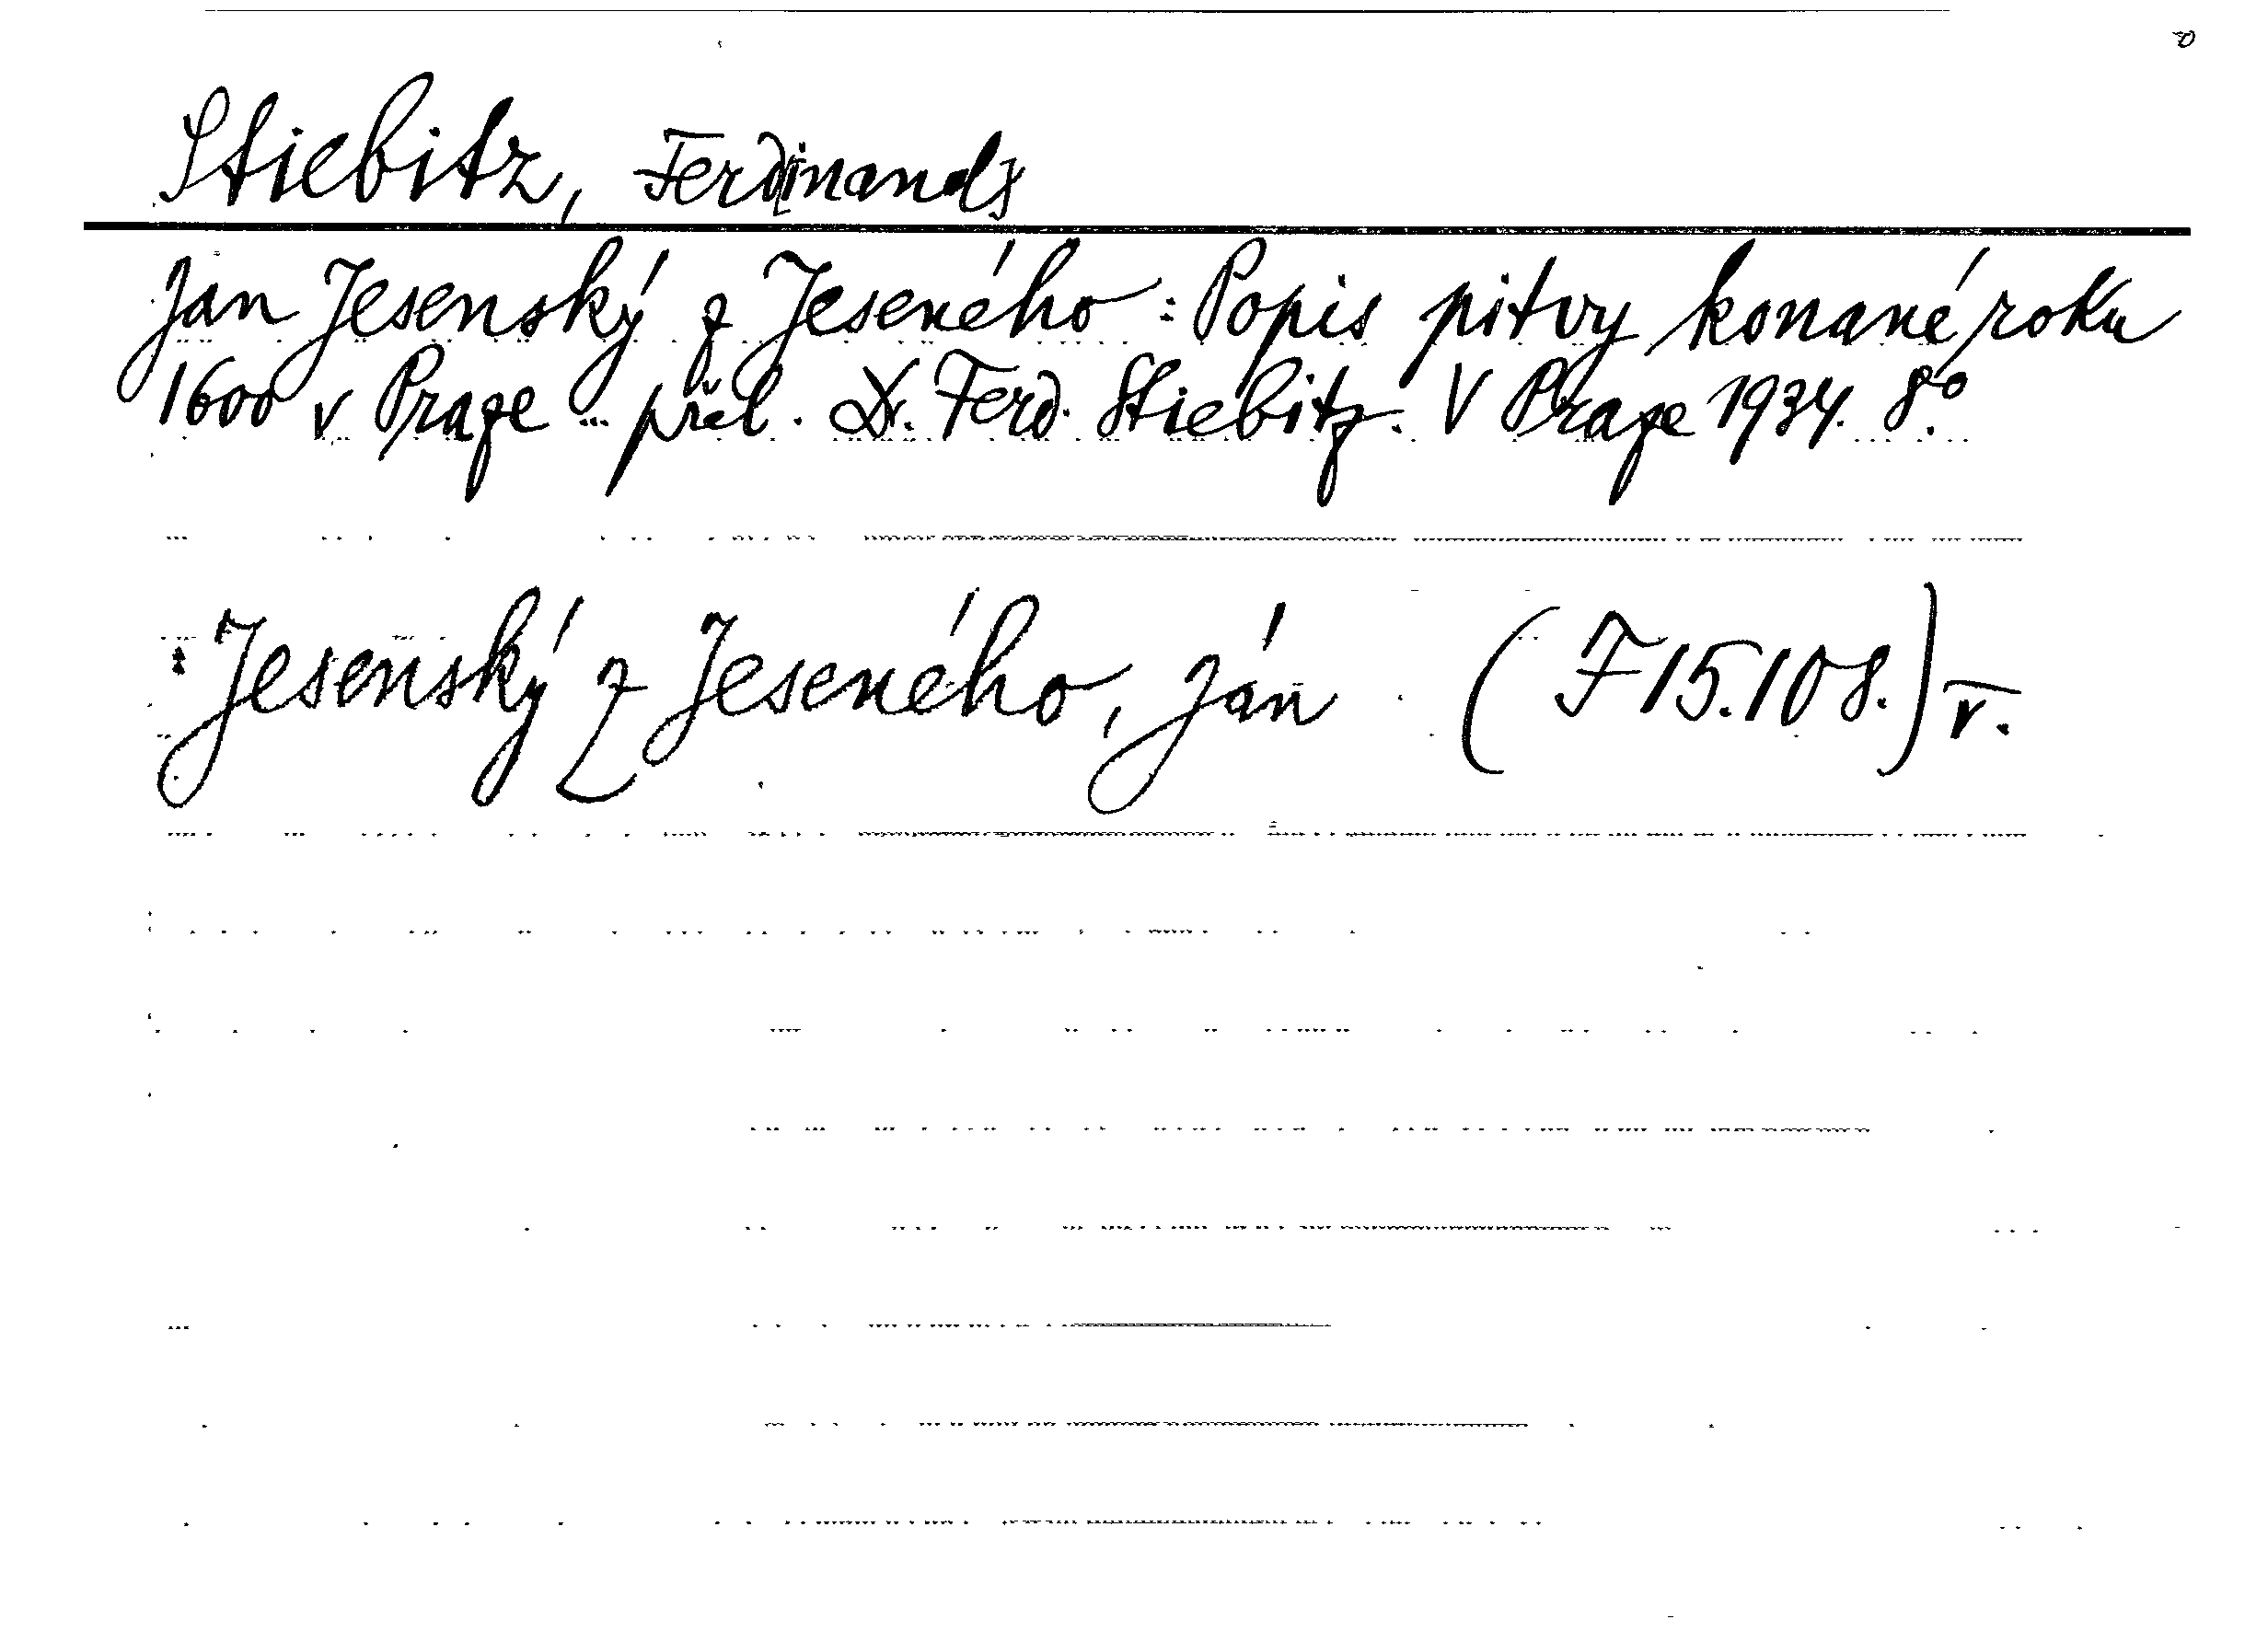 Stiebitz, Ferd[inand]
Jan Jesenský z Jeseného: Popis pitvy konané roku
1600 v Praze... přel. Dr. Ferd. Stiebitz. V Praze 1934. 8.°
: Jesenský z Jeseného, Ján (F 15.108.) v.